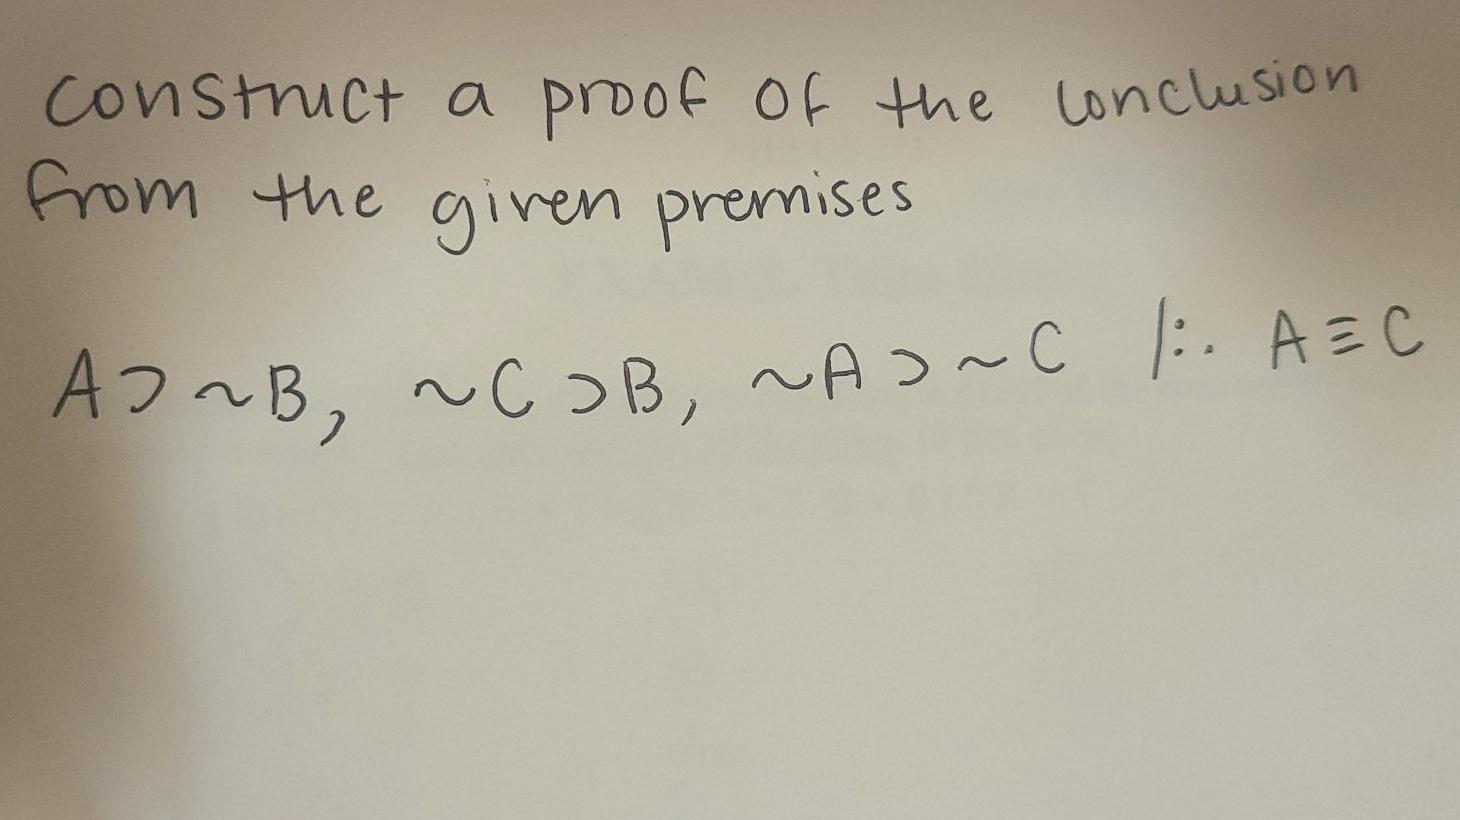 Construct a proof of the conclusion
from the given premises
A ⊃ ~B, ~C ⊃ B, ~A ⊃ ~C /∴ A ≡ C